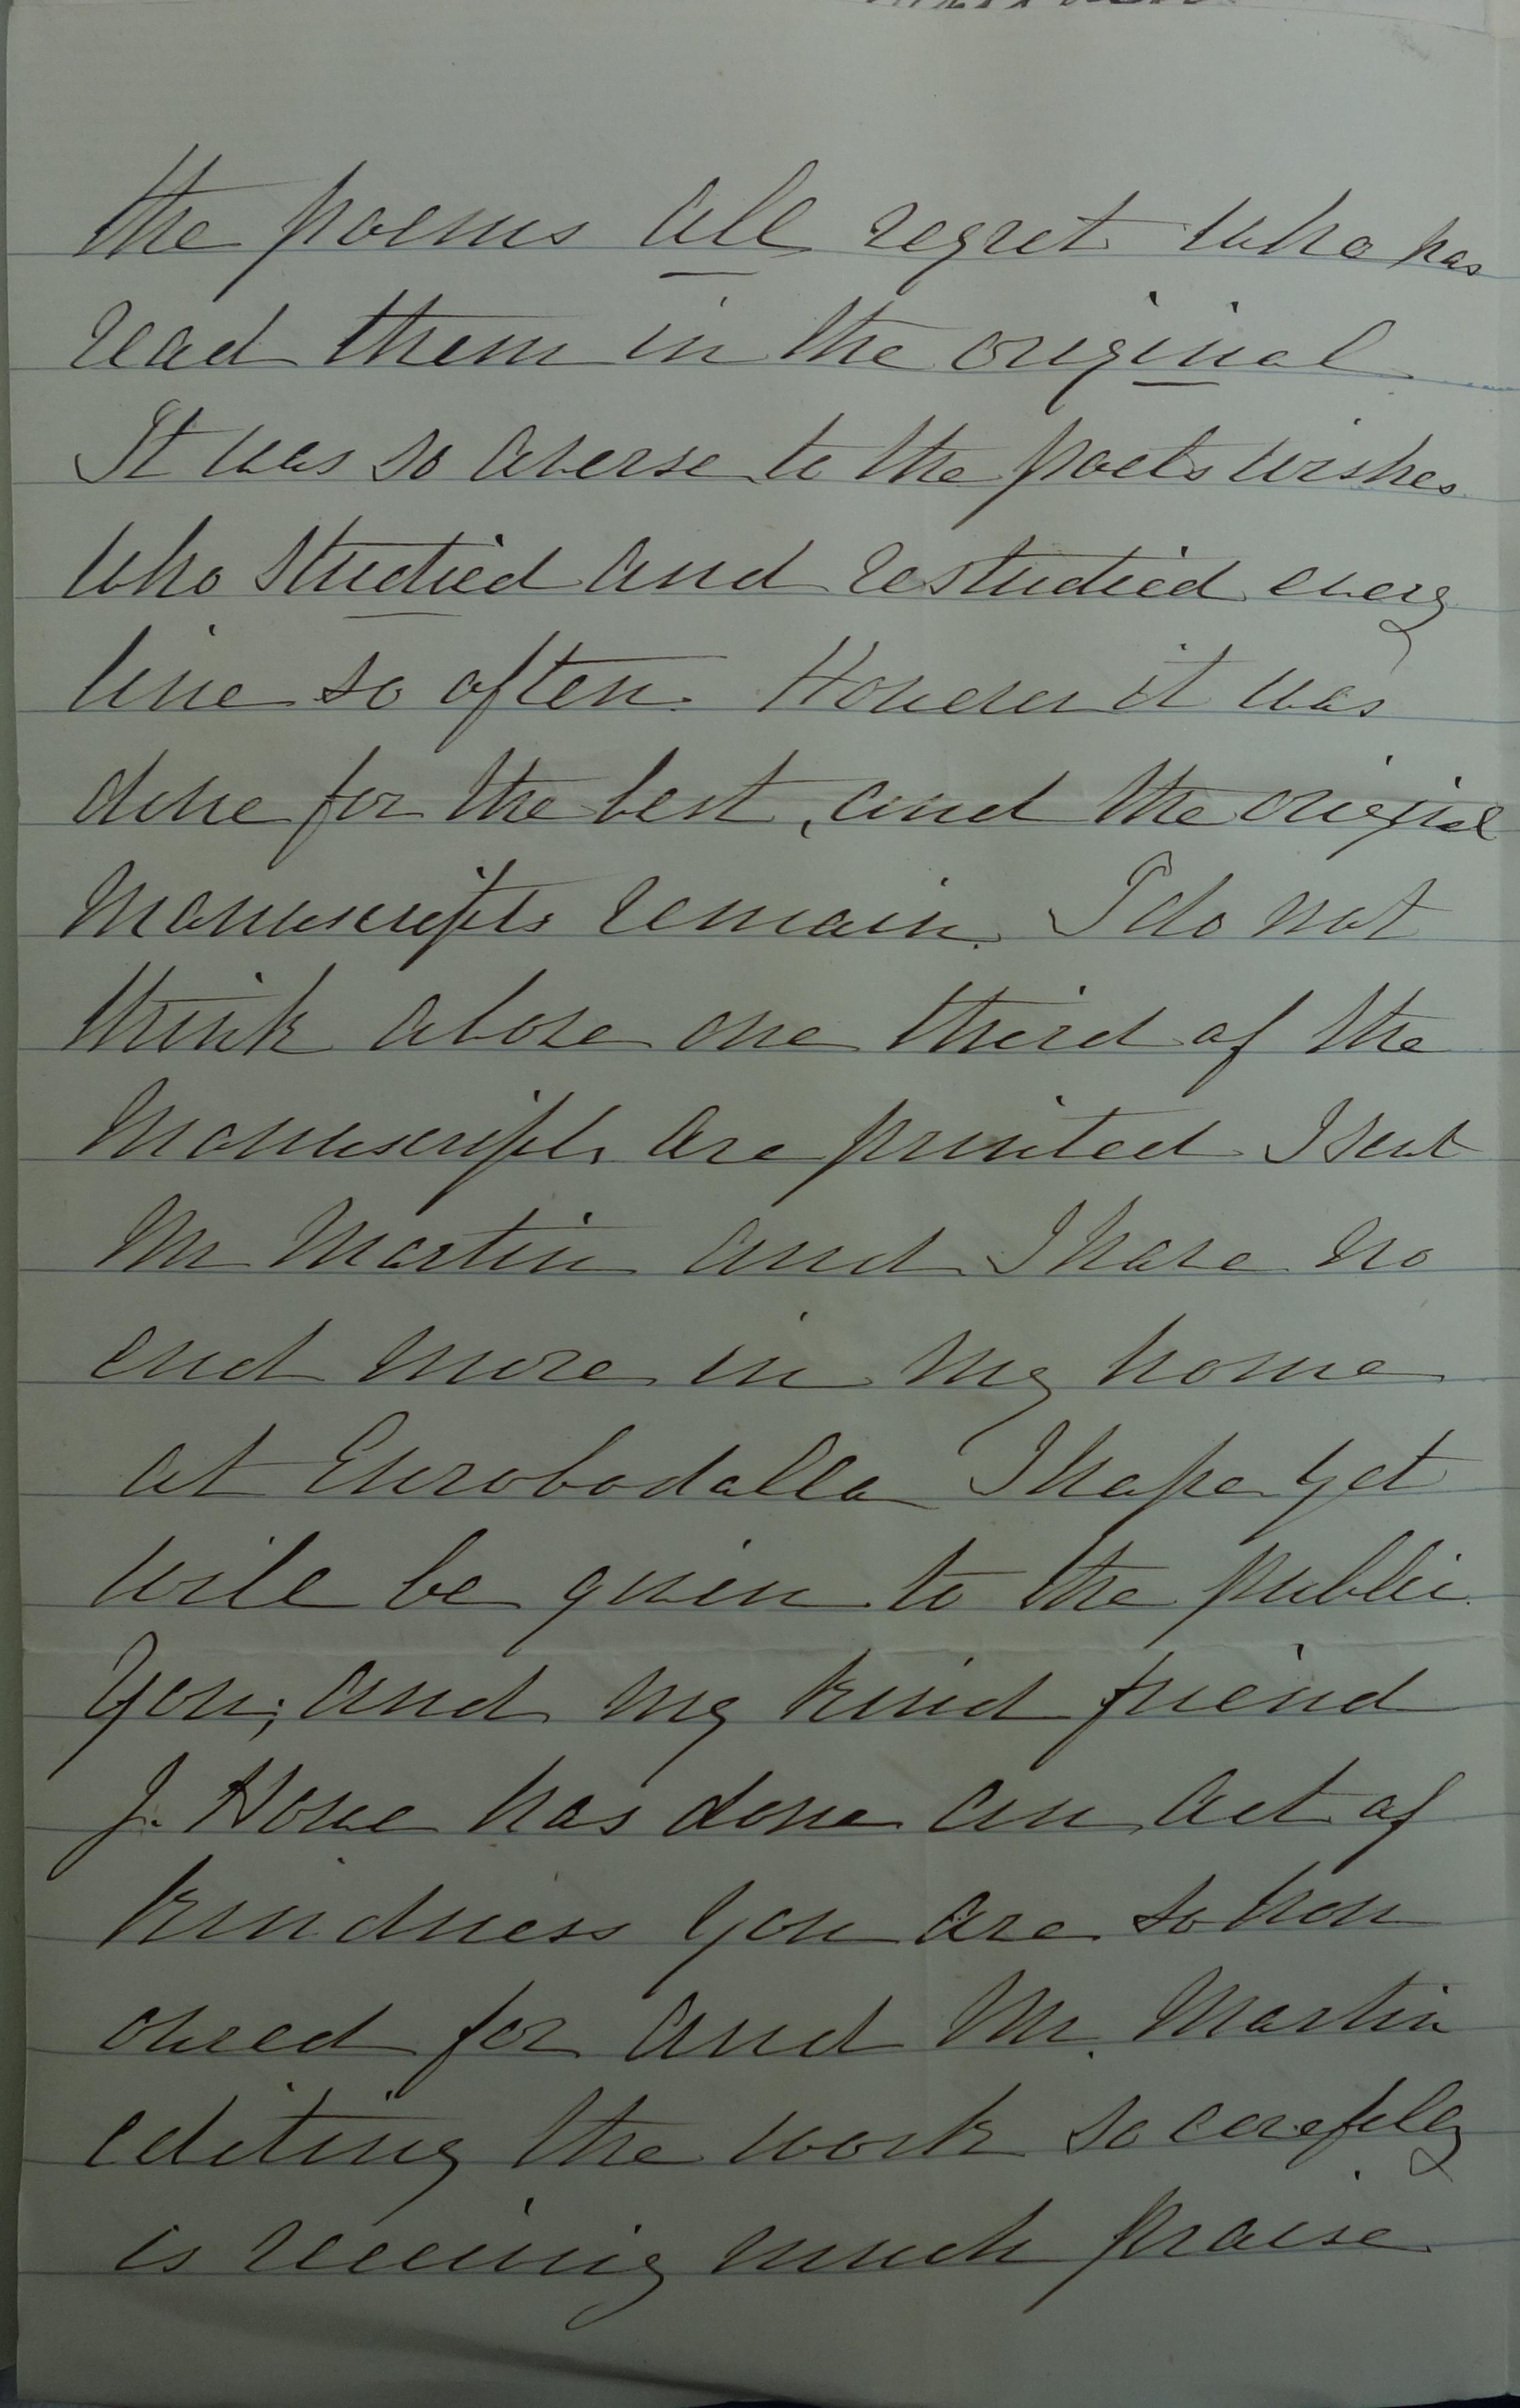 the poems all regret who has
read them in the original
It was so averse to the poets wishes
who studied and restudied every
line so often. However it was
done for the best, and the original
Manuscripts remain. I do not
think above one third of the
Manuscripts are printed I sent
Mr Martin and I have no
end more in my home
at Eurobodalla I hope yet
will be given to the public.
You, and my kind friend
J. Howe has done an act of
kindness you are so hon
oured for and Mr. Martin
editing the work so carefully
is receiving much praise